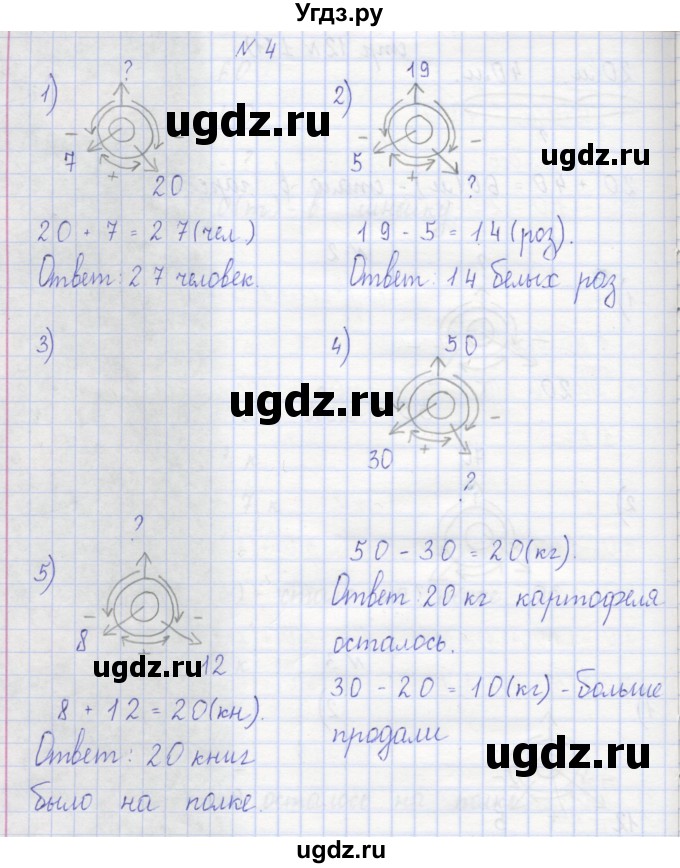 Угдз.ру
N 4
1)
?
- 7
+
20
2)
19
5
-
+
?
20 + 7 = 27(чел.)
Ответ: 27 человек.
19 - 5 = 14(роз).
Ответ: 14 белых роз
3)
4)
50
30
-
+
?
5)
?
-
8
-
+
12
8 + 12 = 20(кн).
Ответ: 20 книг
было на полке.
50 - 30 = 20(кг).
Ответ: 20 кг картофеля
осталось.
30 - 20 = 10(кг) - больше
продали
ugdz.ru
ugdz.ru
ugdz.ru
ugdz.ru
ugdz.ru